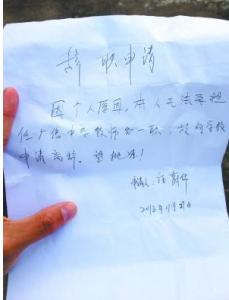 辞职申请
因个人原因,本人无法再担
任广信中学教师一职,特向学校
申请离辞。望批准!
申请人:
2012年11月21日